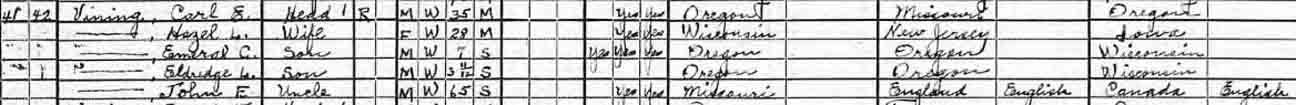 48 42 Vining, Carl E. Head 1 R M W 35 M Yes Yes Oregon Missouri Oregon
———, Hazel L. Wife F W 28 M Yes Yes Wisconsin New Jersey Iowa
———, Emeral C. Son M W 7 S Yes Yes Yes Oregon Oregon Wisconsin
———, Eldredge L. Son M W 3 11/12 S Oregon Oregon Wisconsin
———, John E. Uncle M W 65 S Yes Yes Missouri England English Canada English